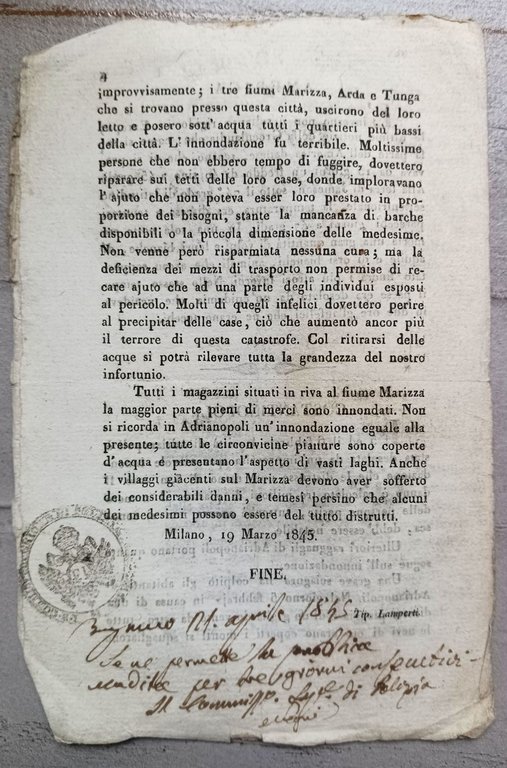 4
improvvisamente; i tre fiumi Marizza, Arda e Tunga
che si trovano presso questa città, uscirono del loro
letto e posero sott' acqua tutti i quartieri più bassi
della città. L' innondazione fu terribile. Moltissime
persone che non ebbero tempo di fuggire, dovettero
riparare sui tetti delle loro case, donde imploravano
l' ajuto che non poteva esser loro prestato in pro-
porzione dei bisogni, stante la mancanza di barche
disponibili o la piccola dimensione delle medesime.
Non venne però risparmiata nessuna cura; ma la
deficienza dei mezzi di trasporto non permise di re-
care ajuto che ad una parte degli individui esposti
al pericolo. Molti di quegli infelici dovettero perire
al precipitar delle case, ciò che aumentò ancor più
il terrore di questa catastrofe. Col ritirarsi delle
acque si potrà rilevare tutta la grandezza del nostro
infortunio.
Tutti i magazzini situati in riva al fiume Marizza
la maggior parte pieni di merci sono innondati. Non
si ricorda in Adrianopoli un' innondazione eguale alla
presente; tutte le circonvicine pianure sono coperte
d'acqua e presentano l'aspetto di vasti laghi. Anche
i villaggi giacenti sul Marizza devono aver sofferto
dei considerabili danni, e temesi persino che alcuni
dei medesimi possano essere del tutto distrutti.
Milano, 19 Marzo 1845.
FINE.
21 aprile 1845
Tip. Lamperti.
Se ne permette la
vendita per tre giorni consecutivi
Il Commiss. di Polizia